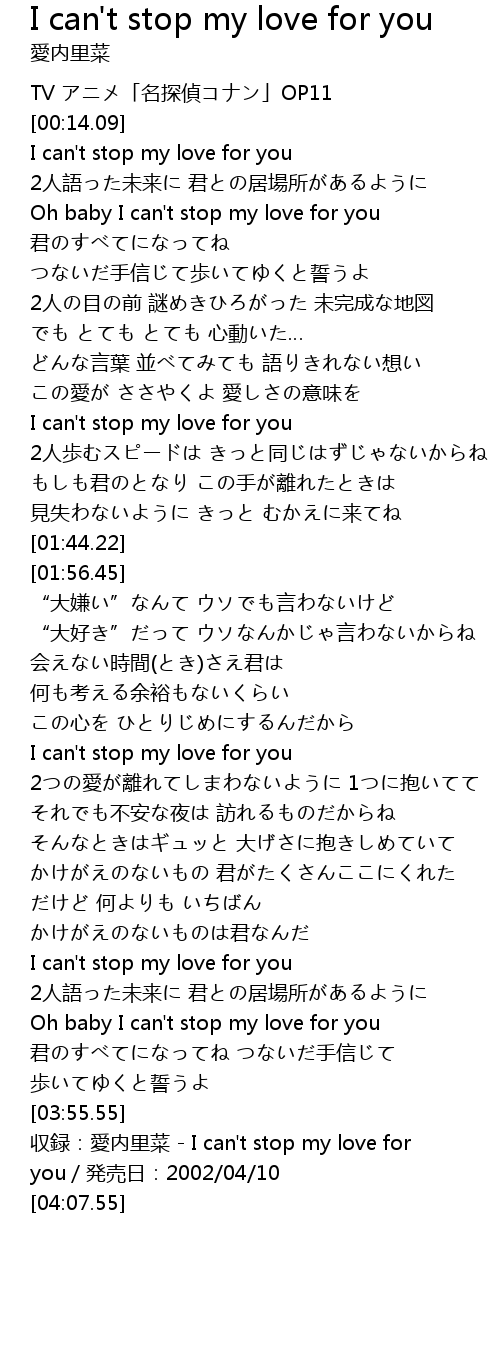 I can't stop my love for you
愛内里菜
TV アニメ「名探偵コナン」OP11
[00:14.09]
I can't stop my love for you
2人語った未来に 君との居場所があるように
Oh baby I can't stop my love for you
君のすべてになってね
つないだ手信じて歩いてゆくと誓うよ
2人の目の前 謎めきひろがった 未完成な地図
でも とても とても 心動いた...
どんな言葉 並べてみても 語りきれない想い
この愛が ささやくよ 愛しさの意味を
I can't stop my love for you
2人歩むスピードは きっと同じはずじゃないからね
もしも君のとなり この手が離れたときは
見失わないように きっと むかえに来てね
[01:44.22]
[01:56.45]
“大嫌い”なんて ウソでも言わないけど
“大好き”だって ウソなんかじゃ言わないからね
会えない時間(とき)さえ君は
何も考える余裕もないくらい
この心を ひとりじめにするんだから
I can't stop my love for you
2つの愛が離れてしまわないように 1つに抱いてて
それでも不安な夜は 訪れるものだからね
そんなときはギュッと 大げさに抱きしめていて
かけがえのないもの 君がたくさんここにくれた
だけど 何よりも いちばん
かけがえのないものは君なんだ
I can't stop my love for you
2人語った未来に 君との居場所があるように
Oh baby I can't stop my love for you
君のすべてになってね つないだ手信じて
歩いてゆくと誓うよ
[03:55.55]
収録：愛内里菜 - I can't stop my love for
you / 発売日：2002/04/10
[04:07.55]